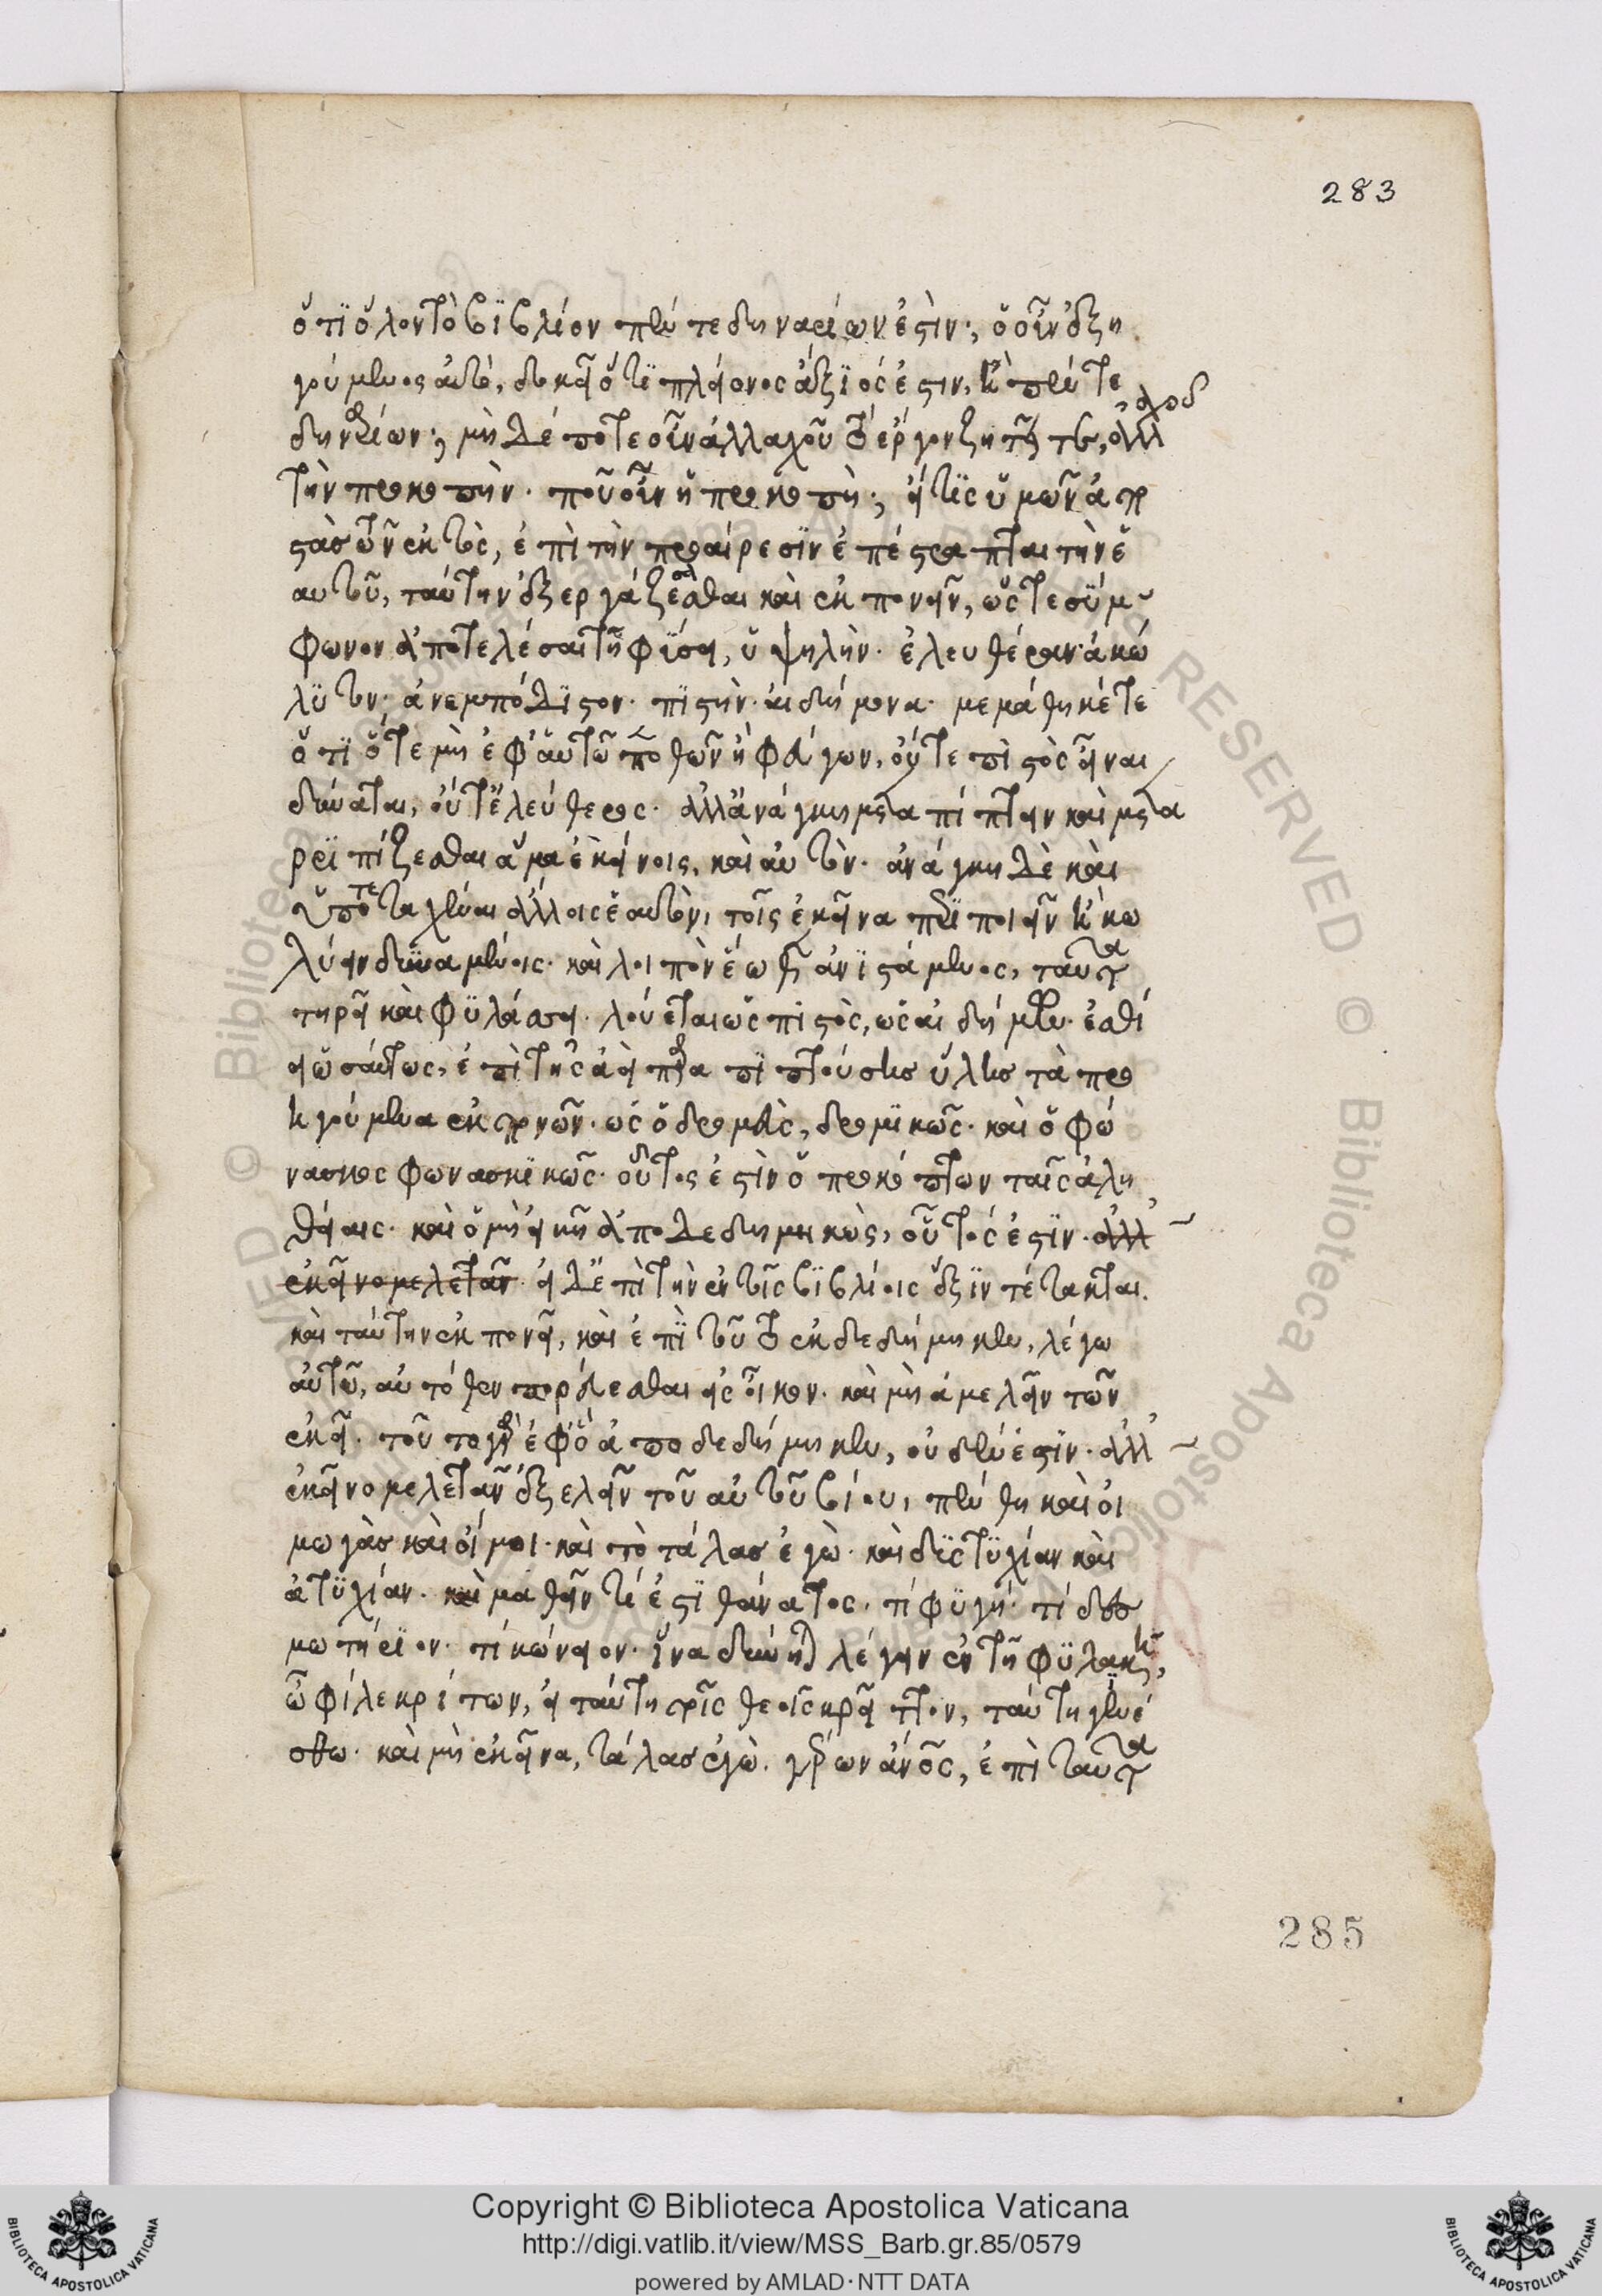 283
ὅτι ὅλον τὸ βιβλίον πέντε δηναρίων ἐστὶν; ὁ οὖν ἐξη
γούμενος αὐτὸ, δοκεῖ ὅτι πλείονος ἄξιός ἐστιν, ἢ πέντε
δηναρίων; μὴ δέποτε οὖν ἀλλαχοῦ τὸ ἔργον ζητεῖτε, ἀλλ
τὴν προκοπήν. ποῦ οὖν ἡ προκοπὴ; εἴ τις ὑμῶν ἀπο
στὰς τῶν ἐκτὸς, ἐπὶ τὴν προαίρεσιν ἐπέστραπται τὴν ἑ
αυτοῦ, ταύτην ἐξεργάζεσθαι καὶ ἐκπονεῖν, ὥστε σύμ
φωνον ἀποτελέσαι τῇ φύσει, ὑψηλὴν. ἐλευθέραν. ἀκώ
λυτον. ἀνεμπόδιστον. πιστὴν. αἰδήμονα. μεμάθηκέ τε
ὅτι ὅτε μὴ ἐφ' αὑτῷ ποθῶν ἢ φεύγων, οὔτε πιστὸς εἶναι
δύναται, οὔτ' ἐλεύθερος. ἀλλ' ἀνάγκη μεταπίπτειν καὶ μετα
ριπίζεσθαι ἅμα ἐκείνοις, καὶ αὐτὸν. ἀνάγκη δὲ καὶ
ὑποτεταχέναι ἄλλοις ἑαυτὸν, τοῖς ἐκεῖνα περιποιεῖν ἢ κω
λύειν δυναμένοις. καὶ λοιπὸν ἕωθεν ἀνιστάμενος, ταῦτα
τηρεῖ καὶ φυλάσσει. λούεται ὡς πιστὸς, ὡς αἰδήμων. ἐσθί
ει ὡσαύτως, ἐπὶ τῆς ἀεὶ παραπιπτούσης ὕλης τὰ προ
ηγούμενα ἐκπονῶν. ὡς ὁ δρομεὺς, δρομικῶς. καὶ ὁ φώ
νασκος φωνασκικῶς. οὗτος ἐστὶν ὁ προκόπτων ταῖς ἀλη
θείαις. καὶ ὁ μὴ εἰκῇ ἀποδεδημηκὼς, οὗτός ἐστιν. ἀλλ'
ἐκεῖνο μελετᾶν. εἰ δ' ἐπὶ τὴν ἐν τοῖς βιβλίοις ἕξιν τέτακται.
καὶ ταύτην ἐκπονεῖ, καὶ ἐπὶ τοῦτο ἐκδεδήμηκεν, λέγω
αὐτῷ, αὐτόθεν πορεύεσθαι εἰς οἶκον. καὶ μὴ ἀμελεῖν τῶν
ἐκεῖ. τοῦτο γὰρ ἐφ' ὃ ἀποδεδήμηκεν, οὐδέν ἐστιν. ἀλλ'
ἐκεῖνο μελετᾶν ἐξελεῖν τοῦ αὐτοῦ βίου, πένθη καὶ οἰ
μωγὰς καὶ οἴμοι. καὶ τὸ τάλας ἐγὼ. καὶ δυστυχίαν καὶ
ἀτυχίαν. καὶ μαθεῖν τί ἐστι θάνατος. τί φυγή. τί δεσ
μωτήριον. τί κώνειον. ἵνα δύνηται λέγειν ἐν τῇ φυλακῇ,
ὦ φίλε κρίτων, εἰ ταύτῃ τοῖς θεοῖς κρεῖττον, ταύτῃ γενέ
σθω. καὶ μὴ ἐκεῖνα, τάλας ἐγὼ. γέρων ἄνθρωπος, ἐπὶ ταῦτα
285
© Biblioteca Apostolica Vaticana
Copyright © Biblioteca Apostolica Vaticana
http://digi.vatlib.it/view/MSS_Barb.gr.85/0579
powered by AMLAD·NTT DATA
BIBLIOTECA APOSTOLICA VATICANA
BIBLIOTECA APOSTOLICA VATICANA